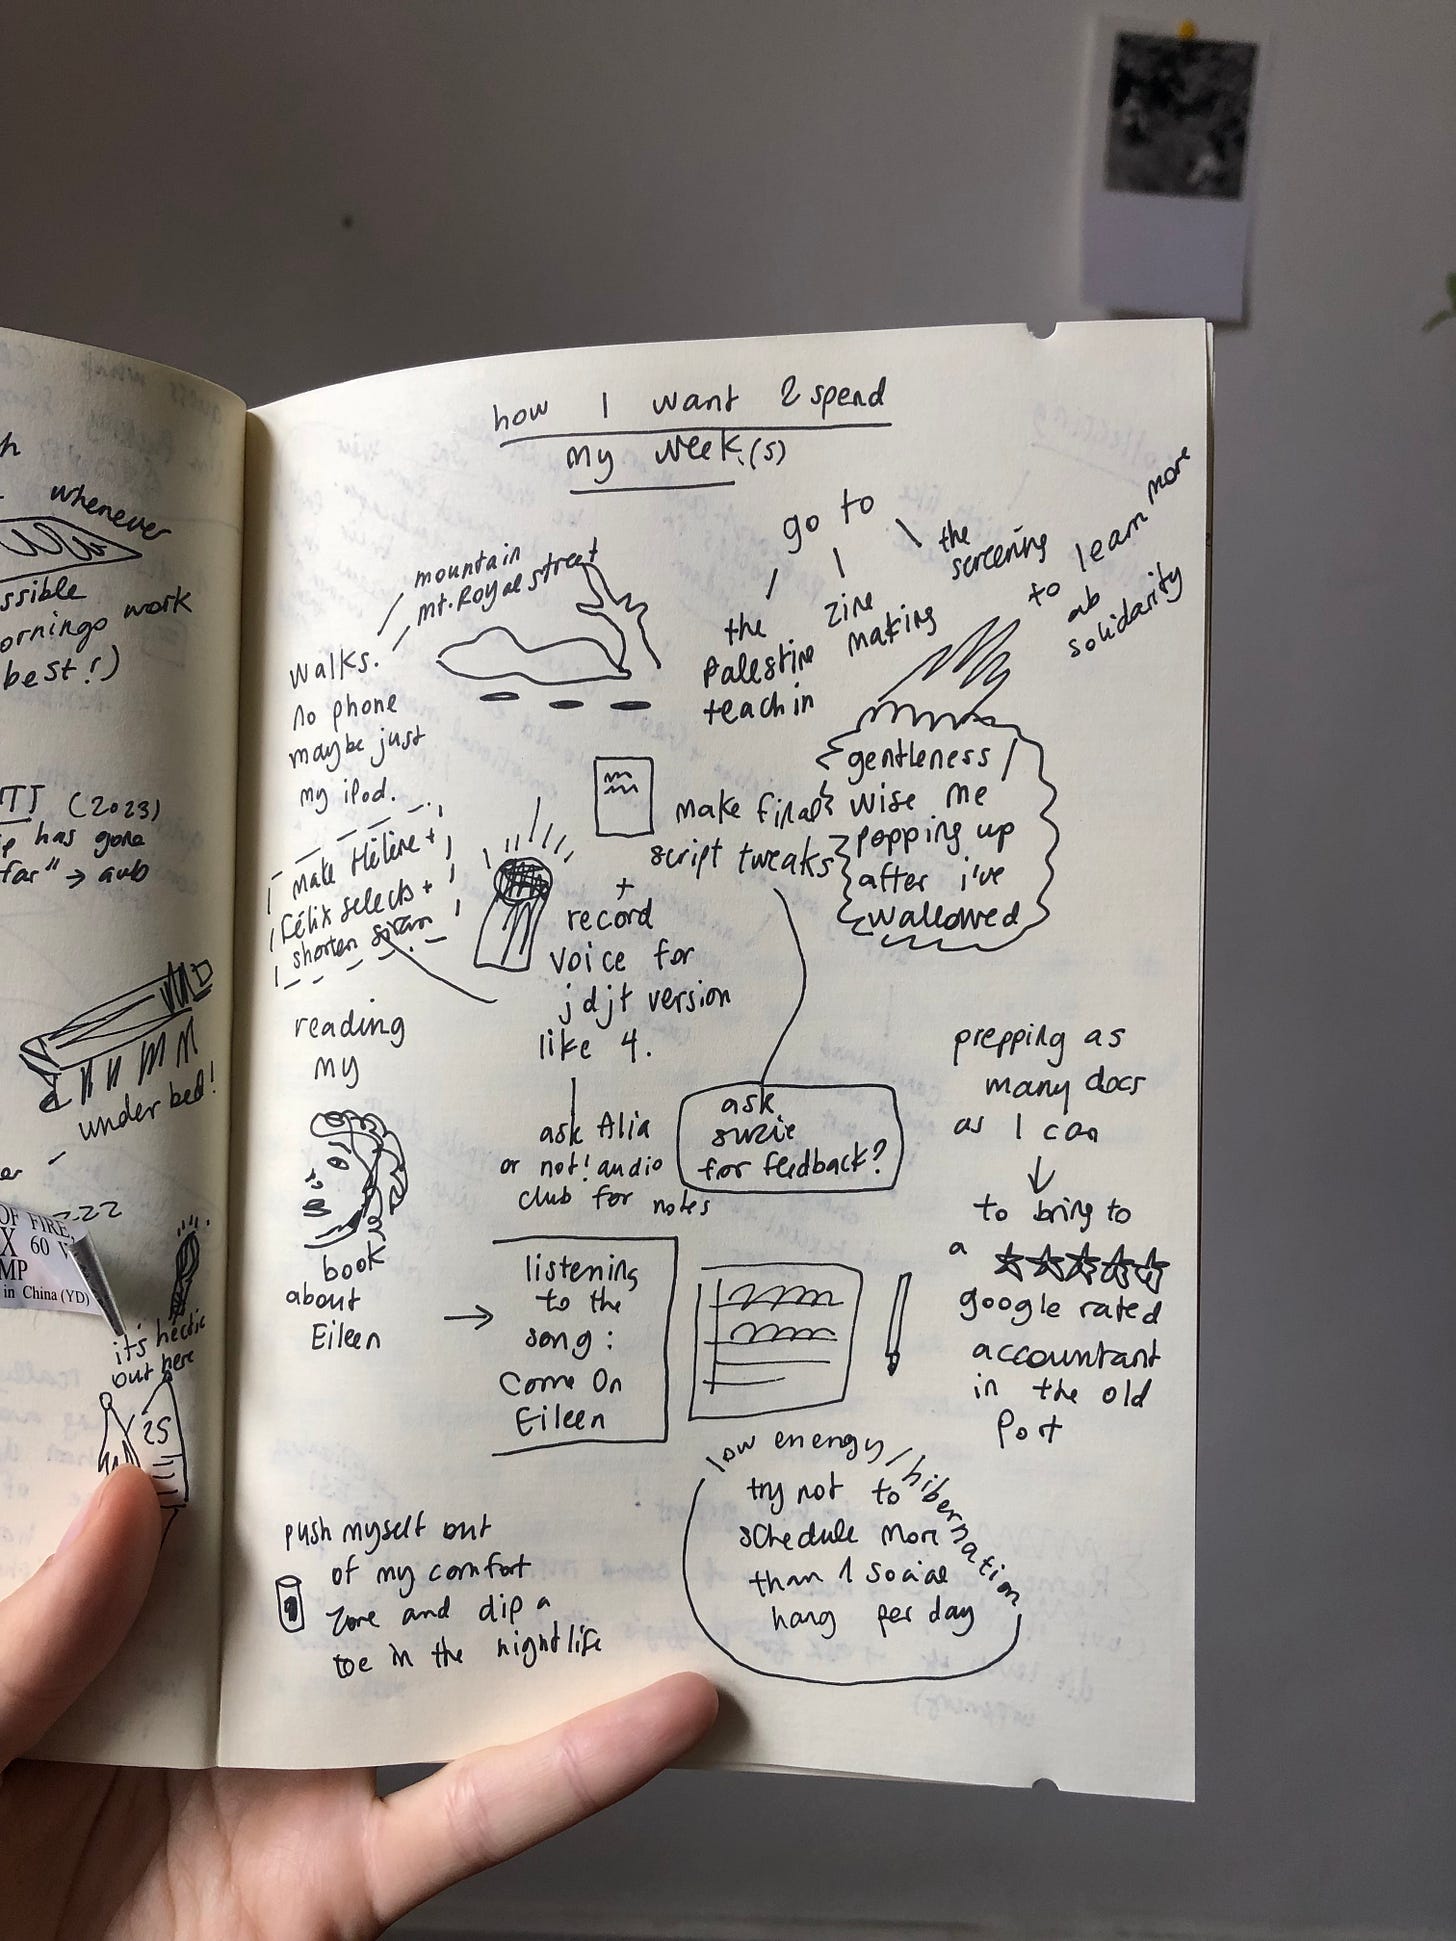 whenever
ssible
ornings work
best!)
(2023)
has gone
far" → aub
under bed!
OF FIRE,
X 60 W
MP
in China (YD)
it's hectic
out here
25
how I want 2 spend
my week.(s)
mountain
mt. Royal street
walks.
no phone
maybe just
my ipod.
go to
the
Palestine
teach in
zine
making
the
screening
to learn more
ab
solidarity
gentleness /
wise me
popping up
after i've
wallowed
make final
script tweaks
+
record
voice for
jdjt version
like 4.
make Hélène +
Félix selects +
shorten
ask Alia
or not! audio
club for notes
ask
suzie
for feedback?
reading
my
book
about
Eileen
→ listening
to the
song:
Come On
Eileen
prepping as
many docs
as I can
↓
to bring to
a ★★★★★
google rated
accountant
in the old
Port
low energy / hibernation
try not to
schedule more
than 1 social
hang per day
push myself out
of my comfort
zone and dip a
toe in the nightlife